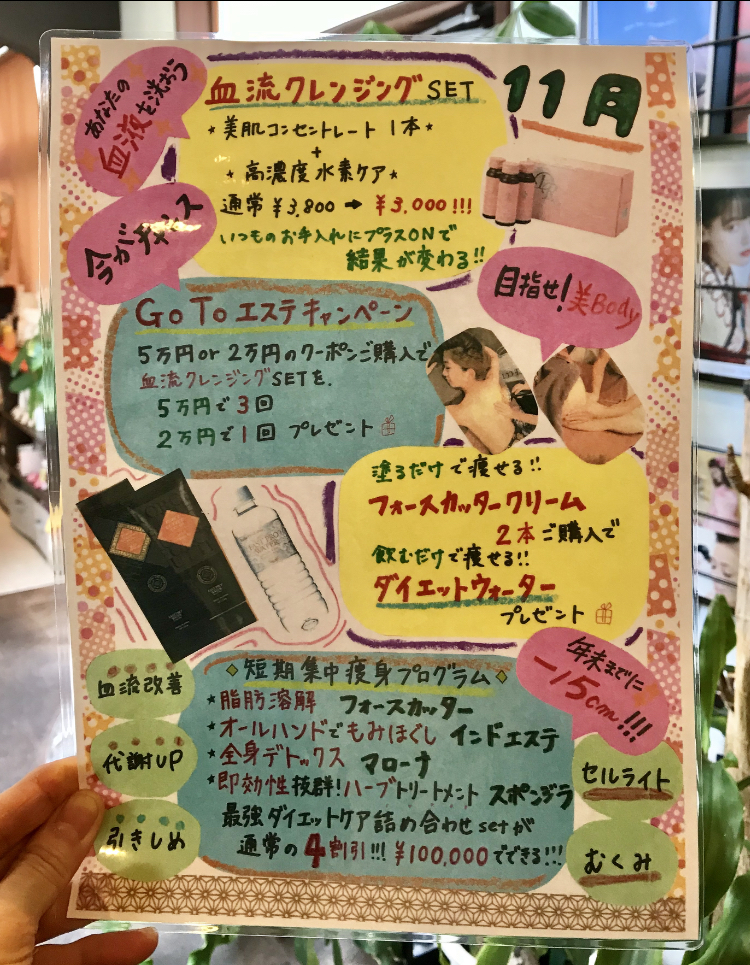 11月
あなたの
血液を洗おう
血流クレンジングSET
★美肌コンセントレート 1本★
+
★高濃度水素ケア★
通常¥3,800➡¥3,000!!!
いつものお手入れにプラスONで
結果が変わる!!
今がチャンス
GoToエステキャンペーン
5万円or2万円のクーポンご購入で
血流クレンジングSETを、
5万円で3回
2万円で1回 プレゼント
目指せ!美Body
塗るだけで痩せる!!
フォースカッタークリーム
2本ご購入で
飲むだけで痩せる!!
ダイエットウォーター
プレゼント
年末までに
-15cm!!!
◇短期集中痩身プログラム◇
★脂肪溶解 フォースカッター
★オールハンドでもみほぐし インドエステ
★全身デトックス マローナ
★即効性抜群!ハーブトリートメント スポンジラ
最強ダイエットケア詰め合わせsetが
通常の4割引!!!¥100,000でできる!!!
血流改善
代謝UP
引きしめ
セルライト
むくみ